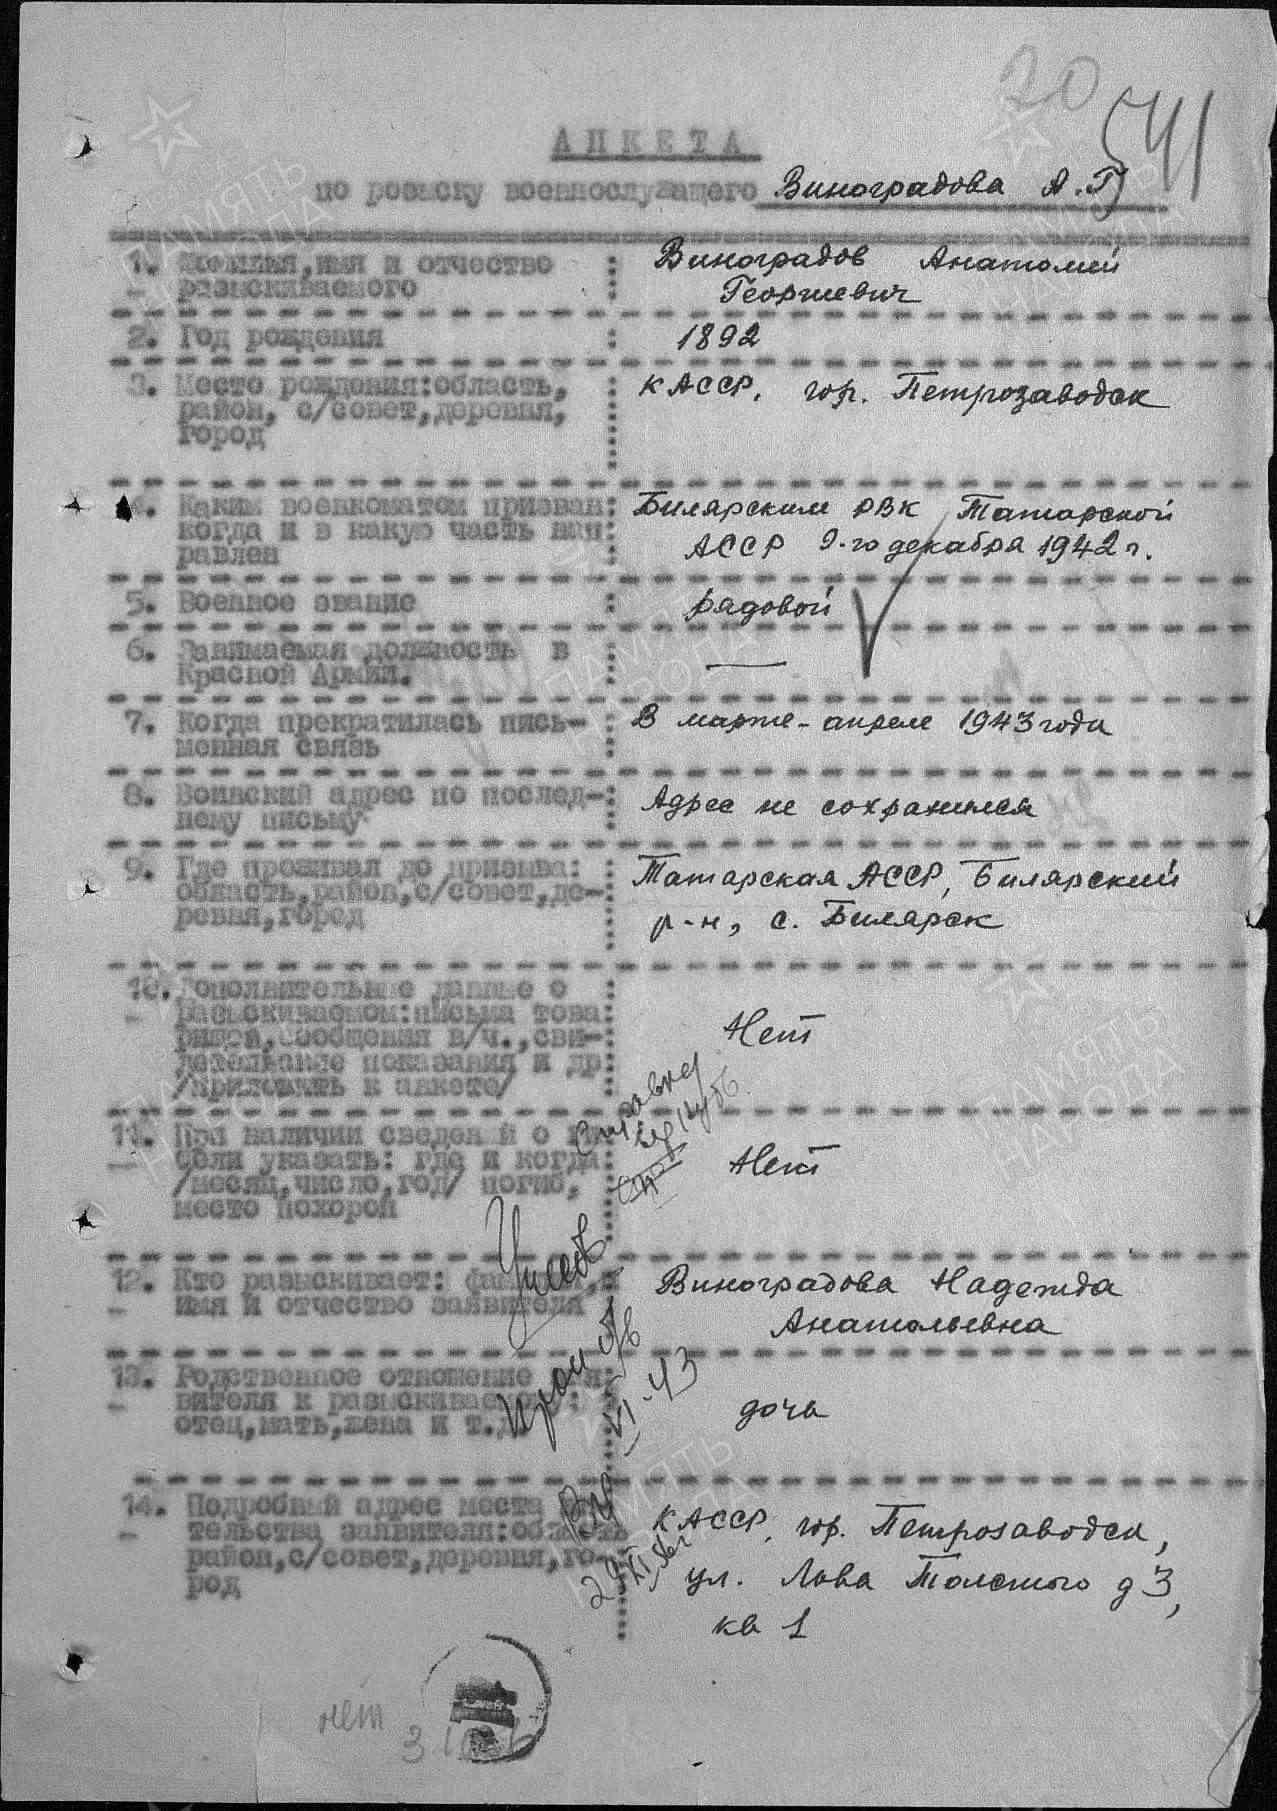 20
541
АНКЕТА
по розыску военнослужащего Виноградова А.Г.
1. Фамилия, имя и отчество : Виноградов Анатолий
разыскиваемого : Георгиевич
2. Год рождения : 1892
3. Место рождения: область, : КАССР, гор. Петрозаводск
район, с/совет, деревня,
город
4. Каким военкоматом призван: Билярским РВК Татарской
когда и в какую часть нап: АССР 9-го декабря 1942 г.
равлен
5. Военное звание : рядовой
6. Занимаемая должность в : —
Красной Армии.
7. Когда прекратилась пись- : В марте-апреле 1943 года
менная связь
8. Воинский адрес по послед-: Адрес не сохранился
нему письму
9. Где проживал до призыва: Татарская АССР, Билярский
область, район, с/совет, де-: р-н, с. Билярск
ревня, город
10. Дополнительные данные о :
разыскиваемом: письма това:
рищей, сообщения в/ч., сви-: Нет
детельские показания и др:
/приложить к анкете/
11. При наличии сведений о
указать: где и когда: Нет
/месяц, число, год/ погиб,
место похорон
12. Кто разыскивает: Виноградова Надежда
имя и отчество заявителя Анатольевна
13. Родственное отношение
вителя к разыскиваемому: дочь
отец, мать, жена и т.д.
14. Подробный адрес места
тельства заявителя: область КАССР, гор. Петрозаводск,
район, с/совет, деревня, го- ул. Льва Толстого д 3,
род кв 1
Справка
VI-43
нет